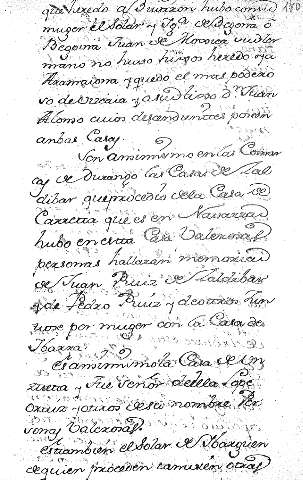 que heredo a Butron hubo con su
muger el Solar y Jg.ª de Begoña o
Begoina Juan de Mogica su Her
mano no hubo hijos heredo ya
Aramaiona y quedo el mas podero
so de Vizcaia y asu hijo D.n Juan
Alonso cuios descendientes poseen
ambas Casas.
Son asimismo en las Comar
cas de Durango las Casas de Zal
dibar que procedio de la Casa de
en Navarra
hubo en esta Casa Valerosas
personas hallaran memorias
de Juan Ruiz de Zaldibar
y de Pedro Ruiz y de otros
por muger con la Casa de
Ibarra.
Es asimismo la Casa de Un
zueta y fue Señor de ella Lope
Ortiz y otros de su nombre Per
sonas Valerosas.
es tambien el Solar de Ibarguen
de quien proceden tambien otras